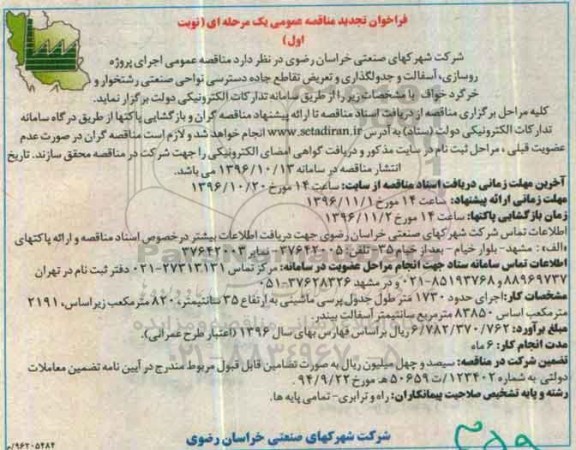 فراخوان تجدید مناقصه عمومی یک مرحله ای (نوبت
اول)
شرکت شهرکهای صنعتی خراسان رضوی در نظر دارد مناقصه عمومی اجرای پروژه
روسازی، آسفالت و جدولگذاری و تعریض تقاطع جاده دسترسی نواحی صنعتی رشتخوار و
خرگرد خواف با مشخصات زیر را از طریق سامانه تدارکات الکترونیکی دولت برگزار نماید.
کلیه مراحل برگزاری مناقصه از دریافت اسناد مناقصه تا ارائه پیشنهاد مناقصه گران و بازگشایی پاکتها از طریق درگاه سامانه
تدارکات الکترونیکی دولت (ستاد) به آدرس www.setadiran.ir انجام خواهد شد و لازم است مناقصه گران در صورت عدم
عضویت قبلی، مراحل ثبت نام در سایت مذکور و دریافت گواهی امضای الکترونیکی را جهت شرکت در مناقصه محقق سازند. تاریخ
انتشار مناقصه در سامانه ۱۳۹۶/۱۰/۱۳ می باشد.
آخرین مهلت زمانی دریافت اسناد مناقصه از سایت: ساعت ۱۴ مورخ ۱۳۹۶/۱۰/۲۰
مهلت زمانی ارائه پیشنهاد: ساعت ۱۴ مورخ ۱۳۹۶/۱۱/۱
زمان بازگشایی پاکتها: ساعت ۱۴ مورخ ۱۳۹۶/۱۱/۲
اطلاعات تماس شرکت شهرکهای صنعتی خراسان رضوی جهت دریافت اطلاعات بیشتر در خصوص اسناد مناقصه و ارائه پاکتهای
«الف»: مشهد- بلوار خیام - بعد از خیام ۳۵- تلفن: ۳۷۶۴۲۰۰۵- نمابر ۳۷۶۴۲۲۰۳
اطلاعات تماس سامانه ستاد جهت انجام مراحل عضویت در سامانه: مرکز تماس ۲۷۳۱۳۱۳۱-۰۲۱ دفتر ثبت نام در تهران
۸۸۹۶۹۷۳۷ و ۸۵۱۹۳۷۶۸-۰۲۱ و در مشهد ۳۷۶۲۸۳۲۶-۰۵۱
مشخصات کار: اجرای حدود ۱۷۳۰ متر طول جدول پرسی ماشینی به ارتفاع ۳۵ سانتیمتر، ۸۲۰ مترمکعب زیراساس، ۲۱۹۱
مترمکعب اساس ۸۳۸۵۰ مترمربع سانتیمتر آسفالت بیندر.
مبلغ برآورد: ۶/۷۸۲/۳۷۰/۷۶۲ ریال بر اساس فهارس بهای سال ۱۳۹۶ (اعتبار طرح عمرانی).
مدت انجام کار: ۶ ماه
تضمین شرکت در مناقصه: سیصد و چهل میلیون ریال به صورت تضامین قابل قبول مربوط مندرج در آیین نامه تضمین معاملات
دولتی به شماره ۱۲۳۴۰۲/ت ۵۰۶۵۹ هـ مورخ ۹۴/۹/۲۲.
رشته و پایه تشخیص صلاحیت پیمانکاران: راه و ترابری- تمامی پایه ها.
شرکت شهرکهای صنعتی خراسان رضوی
۹۶۲۰۵۴۸۴/م